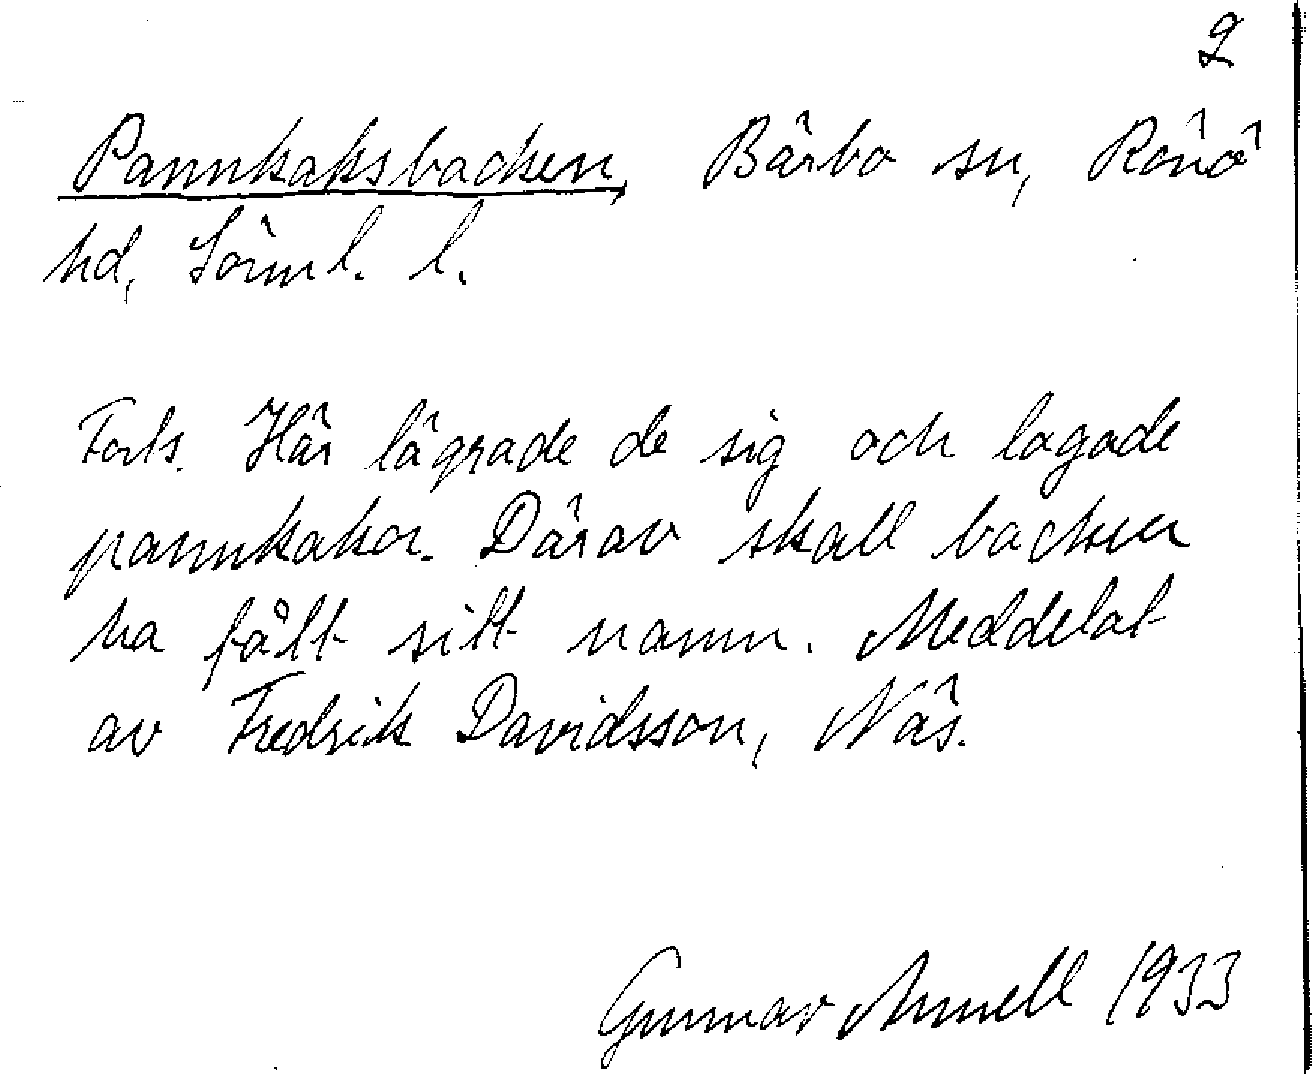 2
Pannkaksbacken, Bärbo sn, Rönö
hd, Sörml. l.
Forts. Här lägrade de sig och lagade
pannkakor. Därav skall backen
ha fått sitt namn. Meddelat
av Fredrik Davidsson, Näs.
Gunnar 1933